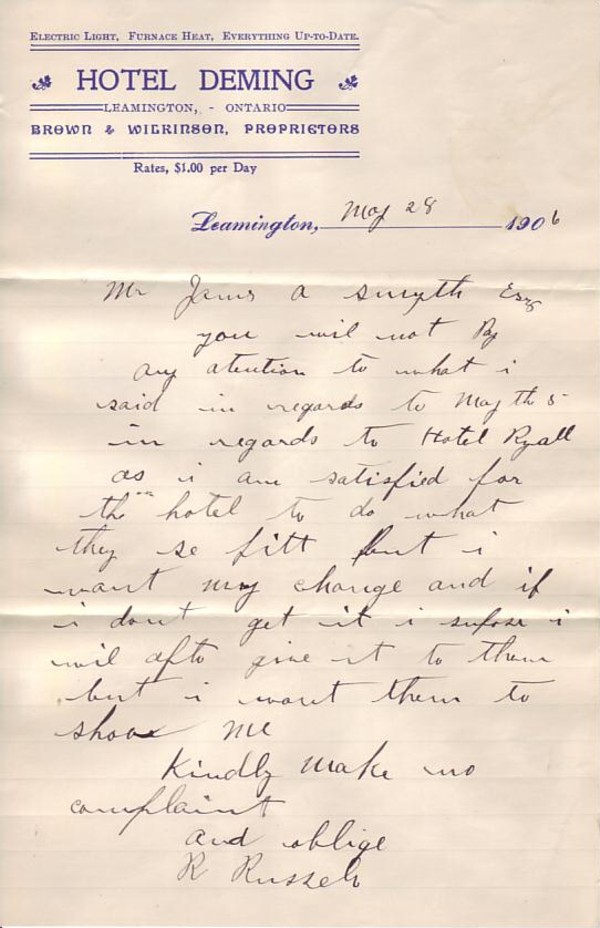 Electric Light, Furnace Heat, Everything Up-to-Date.
HOTEL DEMING
LEAMINGTON, - ONTARIO
BROWN & WILKINSON, PROPRIETORS
Rates, $1.00 per Day
Leamington, May 28 1906
Mr James a smyth Esq
you wil not Pay
any atention to what i
said in regards to May th 5
in regards to Hotel Ryall
as i am satisfied for
the hotel to do what
they se fitt but i
want my change and if
i dont get it i supose i
wil afto give it to them
but i want them to
show me
Kindly make no
complaint
and oblige
R Russell